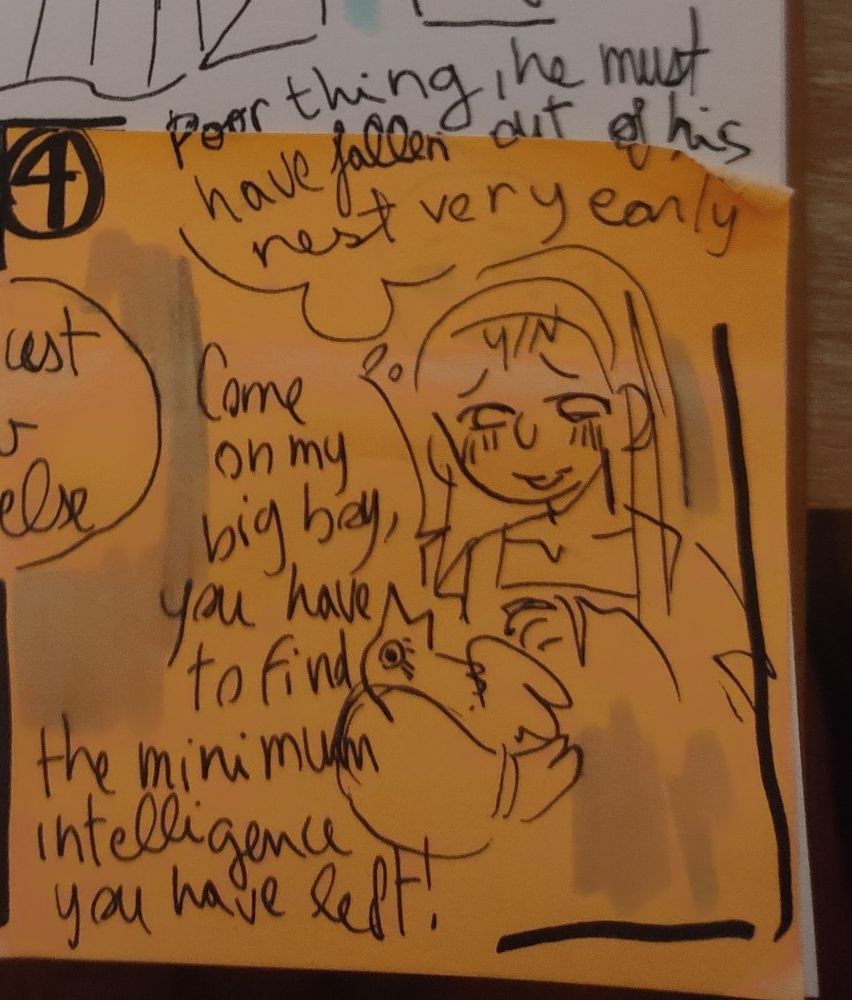 4
Poor thing, he must
have fallen out of his
nest very early
Y/N
Come
on my
big boy,
you have
to find
the minimum
intelligence
you have left!
else